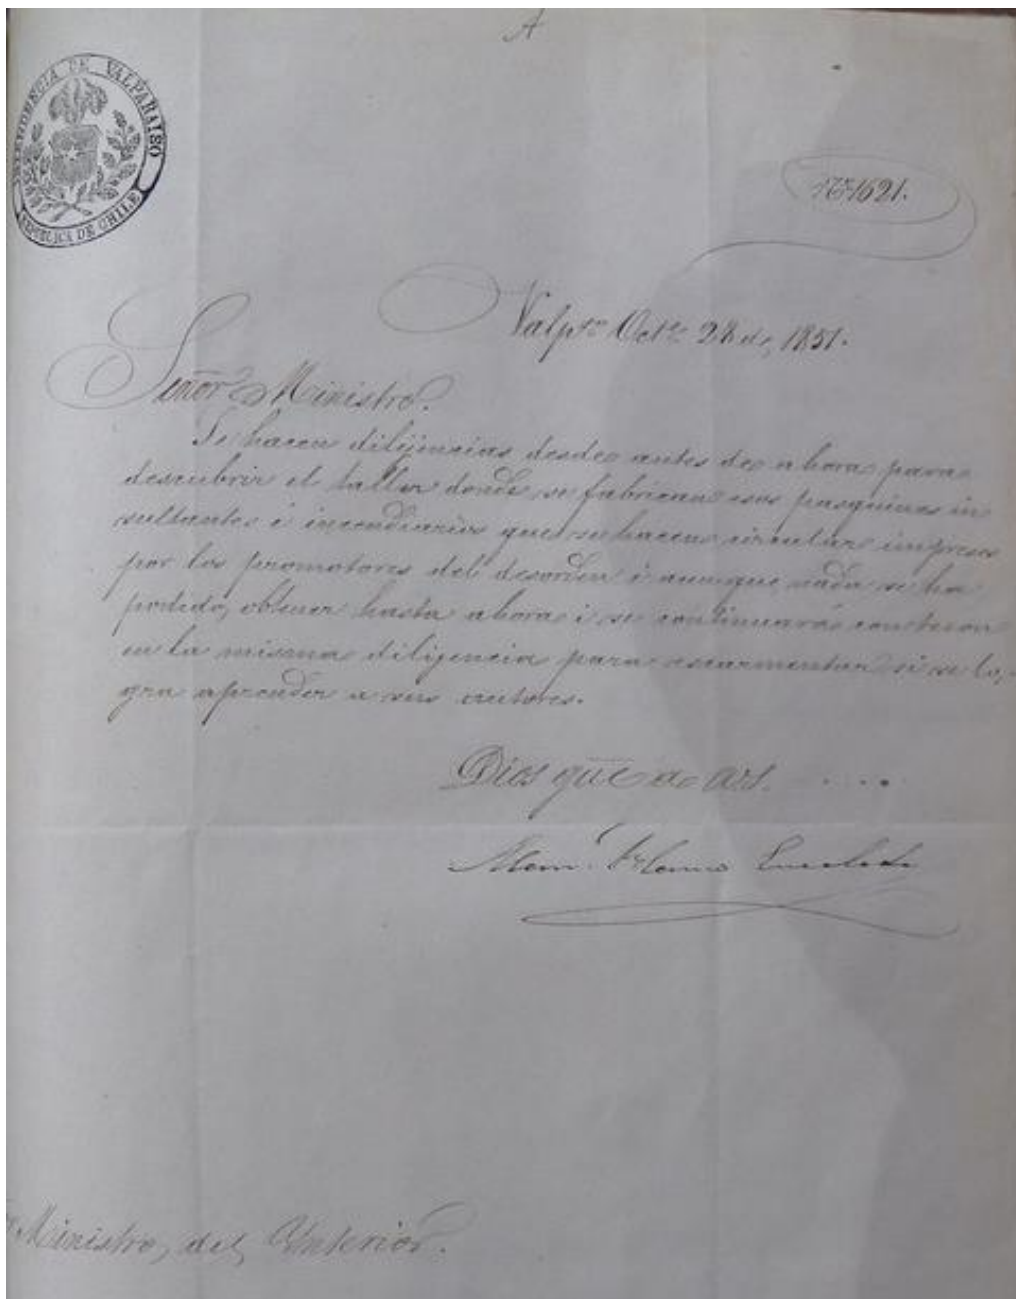 A
INTENDENCIA DE VALPARAISO
REPUBLICA DE CHILE
Nº 1621.
Valpso Octe 28 de 1851.
Señor Ministro.
Se hacen dilijencias desde antes de ahora para
descubrir el taller donde se fabrican esos pasquines in
sultantes i incendiarios que se hacen circular impresos
por los promotores del desorden i aunque nada se ha
podido obtener hasta ahora i se continuará con teson
en la misma dilijencia para escarmentar si se lo-
gra aprender a sus autores.
Dios gue a US.
Ministro del Interior.